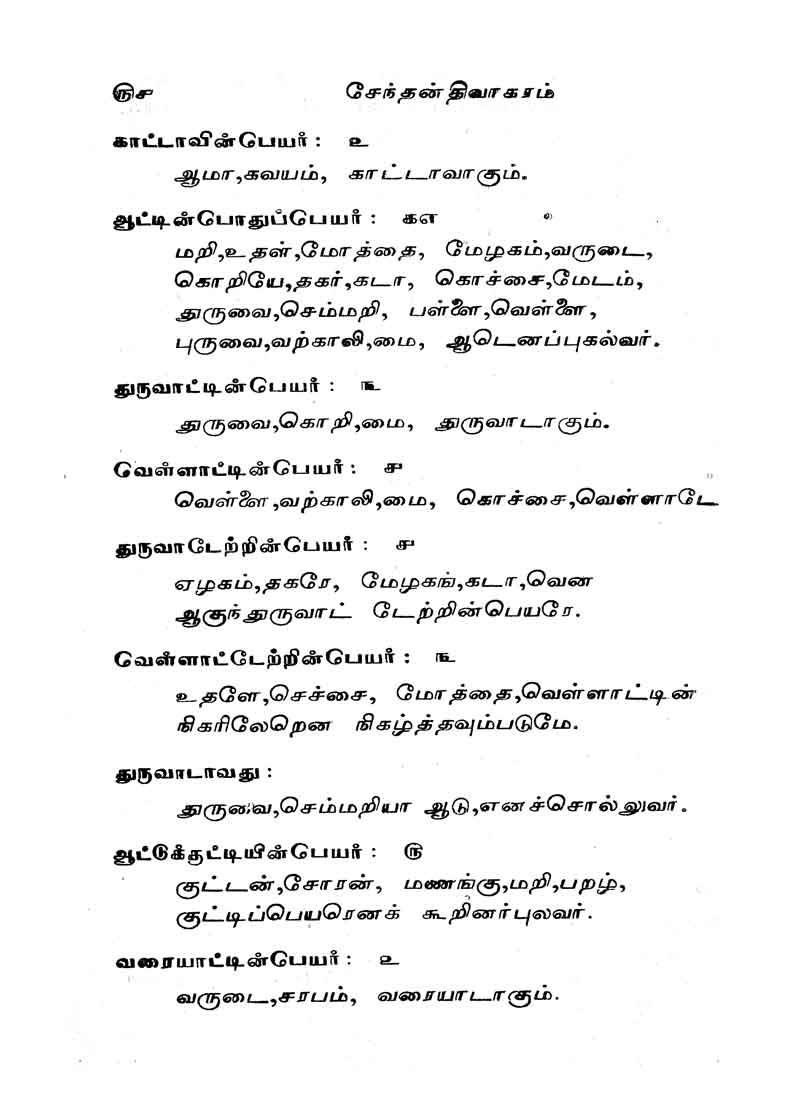 ௫௪ சேந்தன்திவாகரம்
காட்டாவின்பெயர் : ௨
ஆமா,கவயம், காட்டாவாகும்.
ஆட்டின்பொதுப்பெயர் : ௧௭
மறி,உதள்,மோத்தை, மேழகம்,வருடை,
கொறியே,தகர்,கடா, கொச்சை,மேடம்,
துருவை,செம்மறி, பள்ளை,வெள்ளை,
புருவை,வற்காலி,மை, ஆடெனப்புகல்வர்.
துருவாட்டின்பெயர் : ௩
துருவை,கொறி,மை, துருவாடாகும்.
வெள்ளாட்டின்பெயர் : ௪
வெள்ளை,வற்காலி,மை, கொச்சை,வெள்ளாடே
துருவாடேற்றின்பெயர் : ௪
ஏழகம்,தகரே, மேழகங்,கடா,வென
ஆகுந்துருவாட் டேற்றின்பெயரே.
வெள்ளாட்டேற்றின்பெயர் : ௩
உதளே,செச்சை, மோத்தை,வெள்ளாட்டின்
நிகரிலேறென நிகழ்த்தவும்படுமே.
துருவாடாவது :
துருவை,செம்மறியா ஆடு,எனச்சொல்லுவர்.
ஆட்டுக்குட்டியின்பெயர் : ௫
குட்டன்,சோரன், மணங்கு,மறி,பறழ்,
குட்டிப்பெயரெனக் கூறினர்புலவர்.
வரையாட்டின்பெயர் : ௨
வருடை,சரபம், வரையாடாகும்.